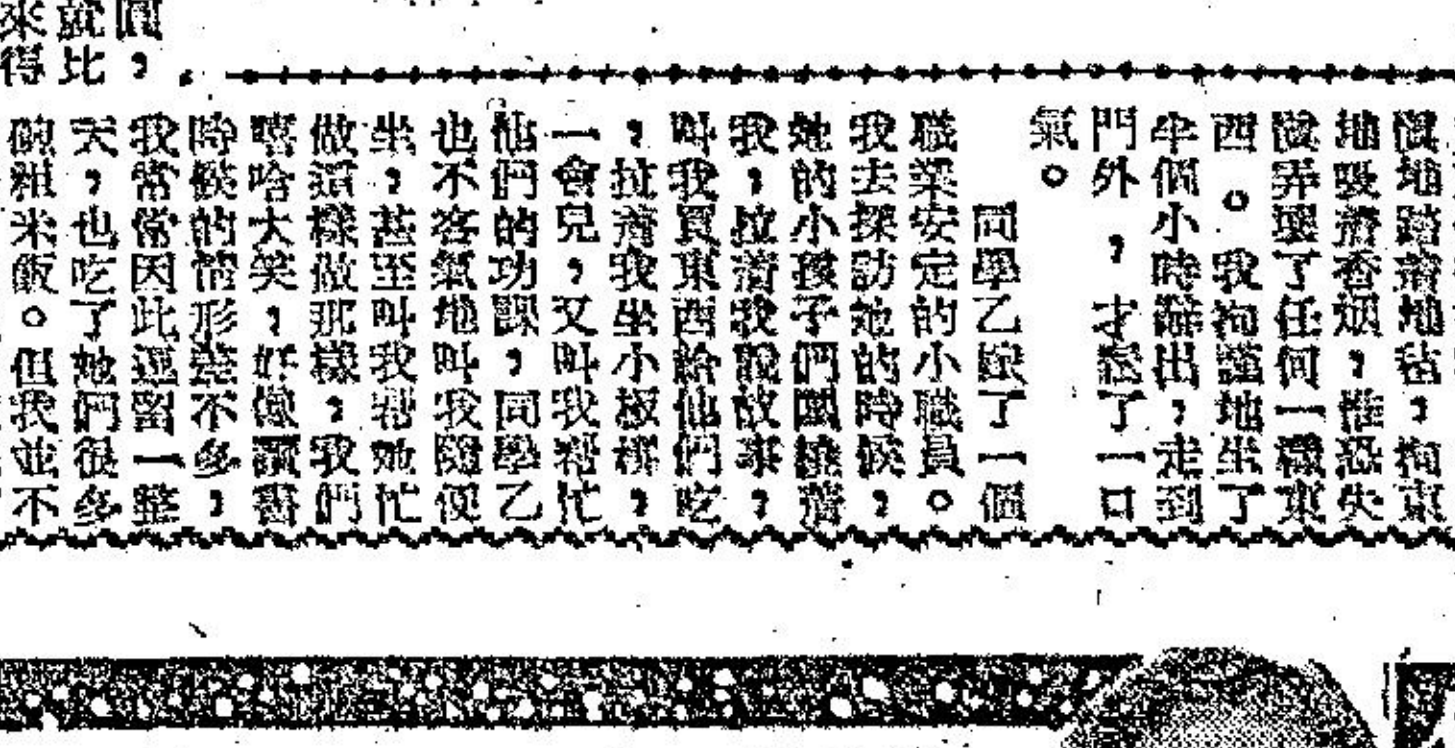 圓，
就比
來得
慢地踏着地毡，拘束
地吸着香烟，惟恐失
儀弄壞了任何一種東
西。我拘謹地坐了
半個小時辭出，走到
門外，才鬆了一口
氣。
同學乙嫁了一個
職業安定的小職員。
我去探訪她的時候，
她的小孩子們圍繞着
我，拉着我說故事，
叫我買東西給他們吃
，拉着我坐小板櫈，
一會兒，又叫我幫忙
他們的功課，同學乙
也不客氣地叫我隨便
坐，甚至叫我幫她忙
做這樣做那樣，我們
嘻哈大笑，好像讀書
時候的情形差不多，
我常常因此逗留一整
天，也吃了她們很多
碗粗米飯。但我並不